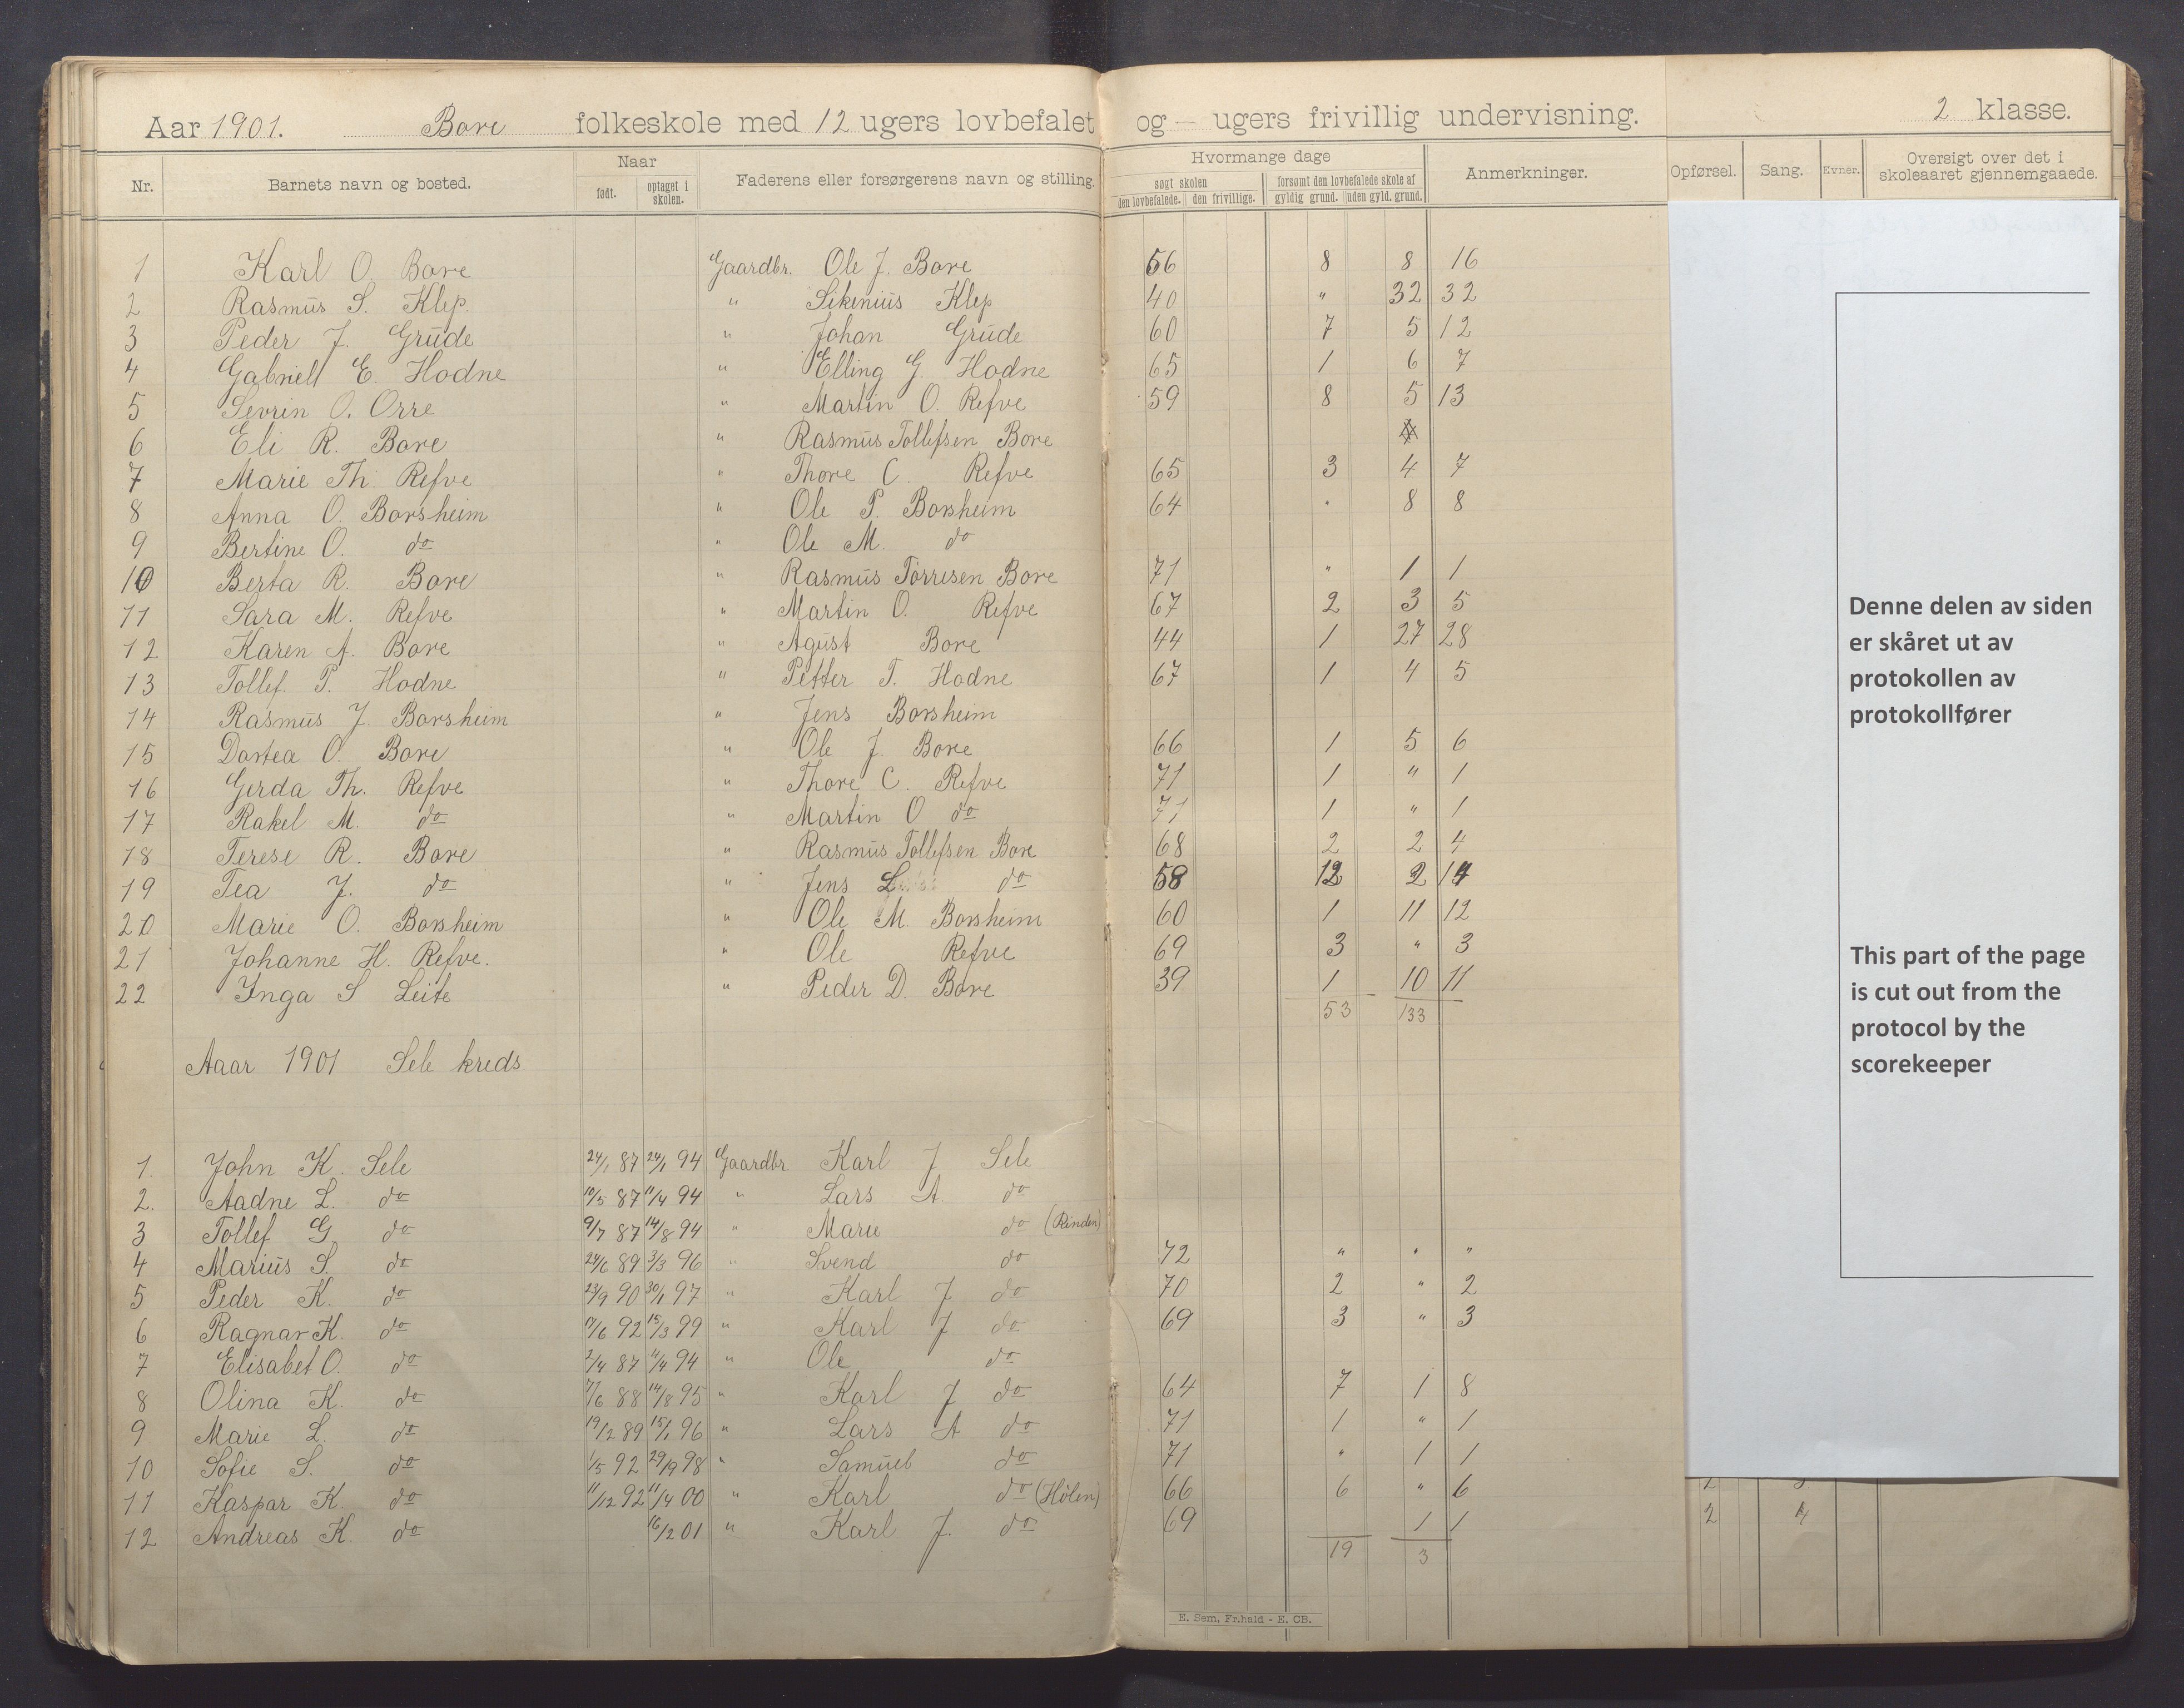 Aar 1901. Bore folkeskole med 12 ugers lovbefalet og — ugers frivillig undervisning. 2 klasse.
Nr. Barnets navn og bosted. Naar født. optaget i skolen. Faderens eller forsørgerens navn og stilling. Hvormange dage søgt skolen den lovbefalede. den frivillige. forsømt den lovbefalede skole af gyldig grund. uden gyld. grund. Anmerkninger. Opførsel. Sang. Evner. Oversigt over det i skoleaaret gjennemgaaede.
1 Karl O. Bore Gaardbr. Ole J. Bore 56 8 8 16
2 Rasmus S. Klep. " Sikenius Klep 40 " 32 32
3 Peder J. Grude " Johan Grude 60 7 5 12
4 Gabriell E. Hodne " Elling G. Hodne 65 1 6 7
5 Sevrin O. Orre " Martin O. Refve 59 8 5 13
6 Eli R. Bore " Rasmus Tollefsen Bore
7 Marie Th. Refve " Thore C. Refve 65 3 4 7
8 Anna O. Borsheim " Ole P. Borsheim 64 " 8 8
9 Bertine O. do " Ole M. do
10 Berta R. Bore " Rasmus Torresen Bore 71 " 1 1
11 Sara M. Refve " Martin O. Refve 67 2 3 5
12 Karen A. Bore " Agust Bore 44 1 27 28
13 Tollef P. Hodne " Petter T. Hodne 67 1 4 5
14 Rasmus J. Borsheim " Jens Borsheim
15 Dortea O. Bore " Ole J. Bore 66 1 5 6
16 Gerda Th. Refve " Thore C. Refve 71 1 " 1
17 Rakel M. do " Martin O do 71 1 " 1
18 Terese R. Bore " Rasmus Tollefsen Bore 68 2 2 4
19 Tea J. do " Jens do 58 12 2 14
20 Marie O. Borsheim " Ole M. Borsheim 60 1 11 12
21 Johanne H. Refve. " Ole Refve 69 3 " 3
22 Inga S Leite " Peder D. Bore 39 1 10 11
53 133
Aaar 1901 Sele kreds
1. John K. Sele 24/1 87 24/1 94 Gaardbr Karl J Sele
2. Aadne L. do 10/5 87 11/4 94 " Lars A. do
3 Tollef G do 9/7 87 14/8 94 " Marie do (Rinden)
4 Marius S. do 24/6 89 3/3 96 " Svend do 72 " " "
5 Peder K. do 23/9 90 30/1 97 " Karl J do 70 2 " 2
6 Ragnar K. do 17/6 92 15/3 99 " Karl J do 69 3 " 3
7 Elisabet O. do 2/4 87 11/4 94 " Ole do
8 Olina K. do 7/6 88 14/8 95 " Karl J do 64 7 1 8
9 Marie L. do 19/2 89 15/1 96 " Lars A do 71 1 " 1
10 Sofie S. do 1/5 92 29/9 98 " Samuel do 71 " 1 1
11 Kaspar K. do 11/12 92 11/4 00 " Karl do (Hølen) 66 6 " 6
12 Andreas K. do 16/2 01 " Karl J. do 69 1 1
19 3
2 4
E. Sem, Fr.hald - E. CB.
Denne delen av siden
er skåret ut av
protokollen av
protokollfører
This part of the page
is cut out from the
protocol by the
scorekeeper